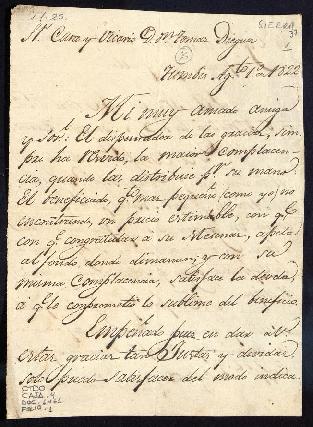 Sr. Cura y Vicario D. Tomas Dieguez
SIERRA
Tumbes Agto. 1o. de 1822
Mi muy amado amigo
y Sor.: El dispensador de las gracias, siem-
pre ha tenido, la maior complacen-
cia, quando las distribuie pr. su mano.
El beneficiado, q. mas pequeño (como yo) no
encontrando, un precio estimable, con q.
congratular a su Mecenas, apela
al fondo, donde dimanan; y con su
misma Complacencia, satisface la deuda
á q. lo comprometió lo sublime del beneficio.
Empeñado pues en dar a V.
estas gracias tan Justas, y devidas
solo puedo satisfacer del modo indica-
OTDO
CAJA. 4
DOC.
FOLIO. 1